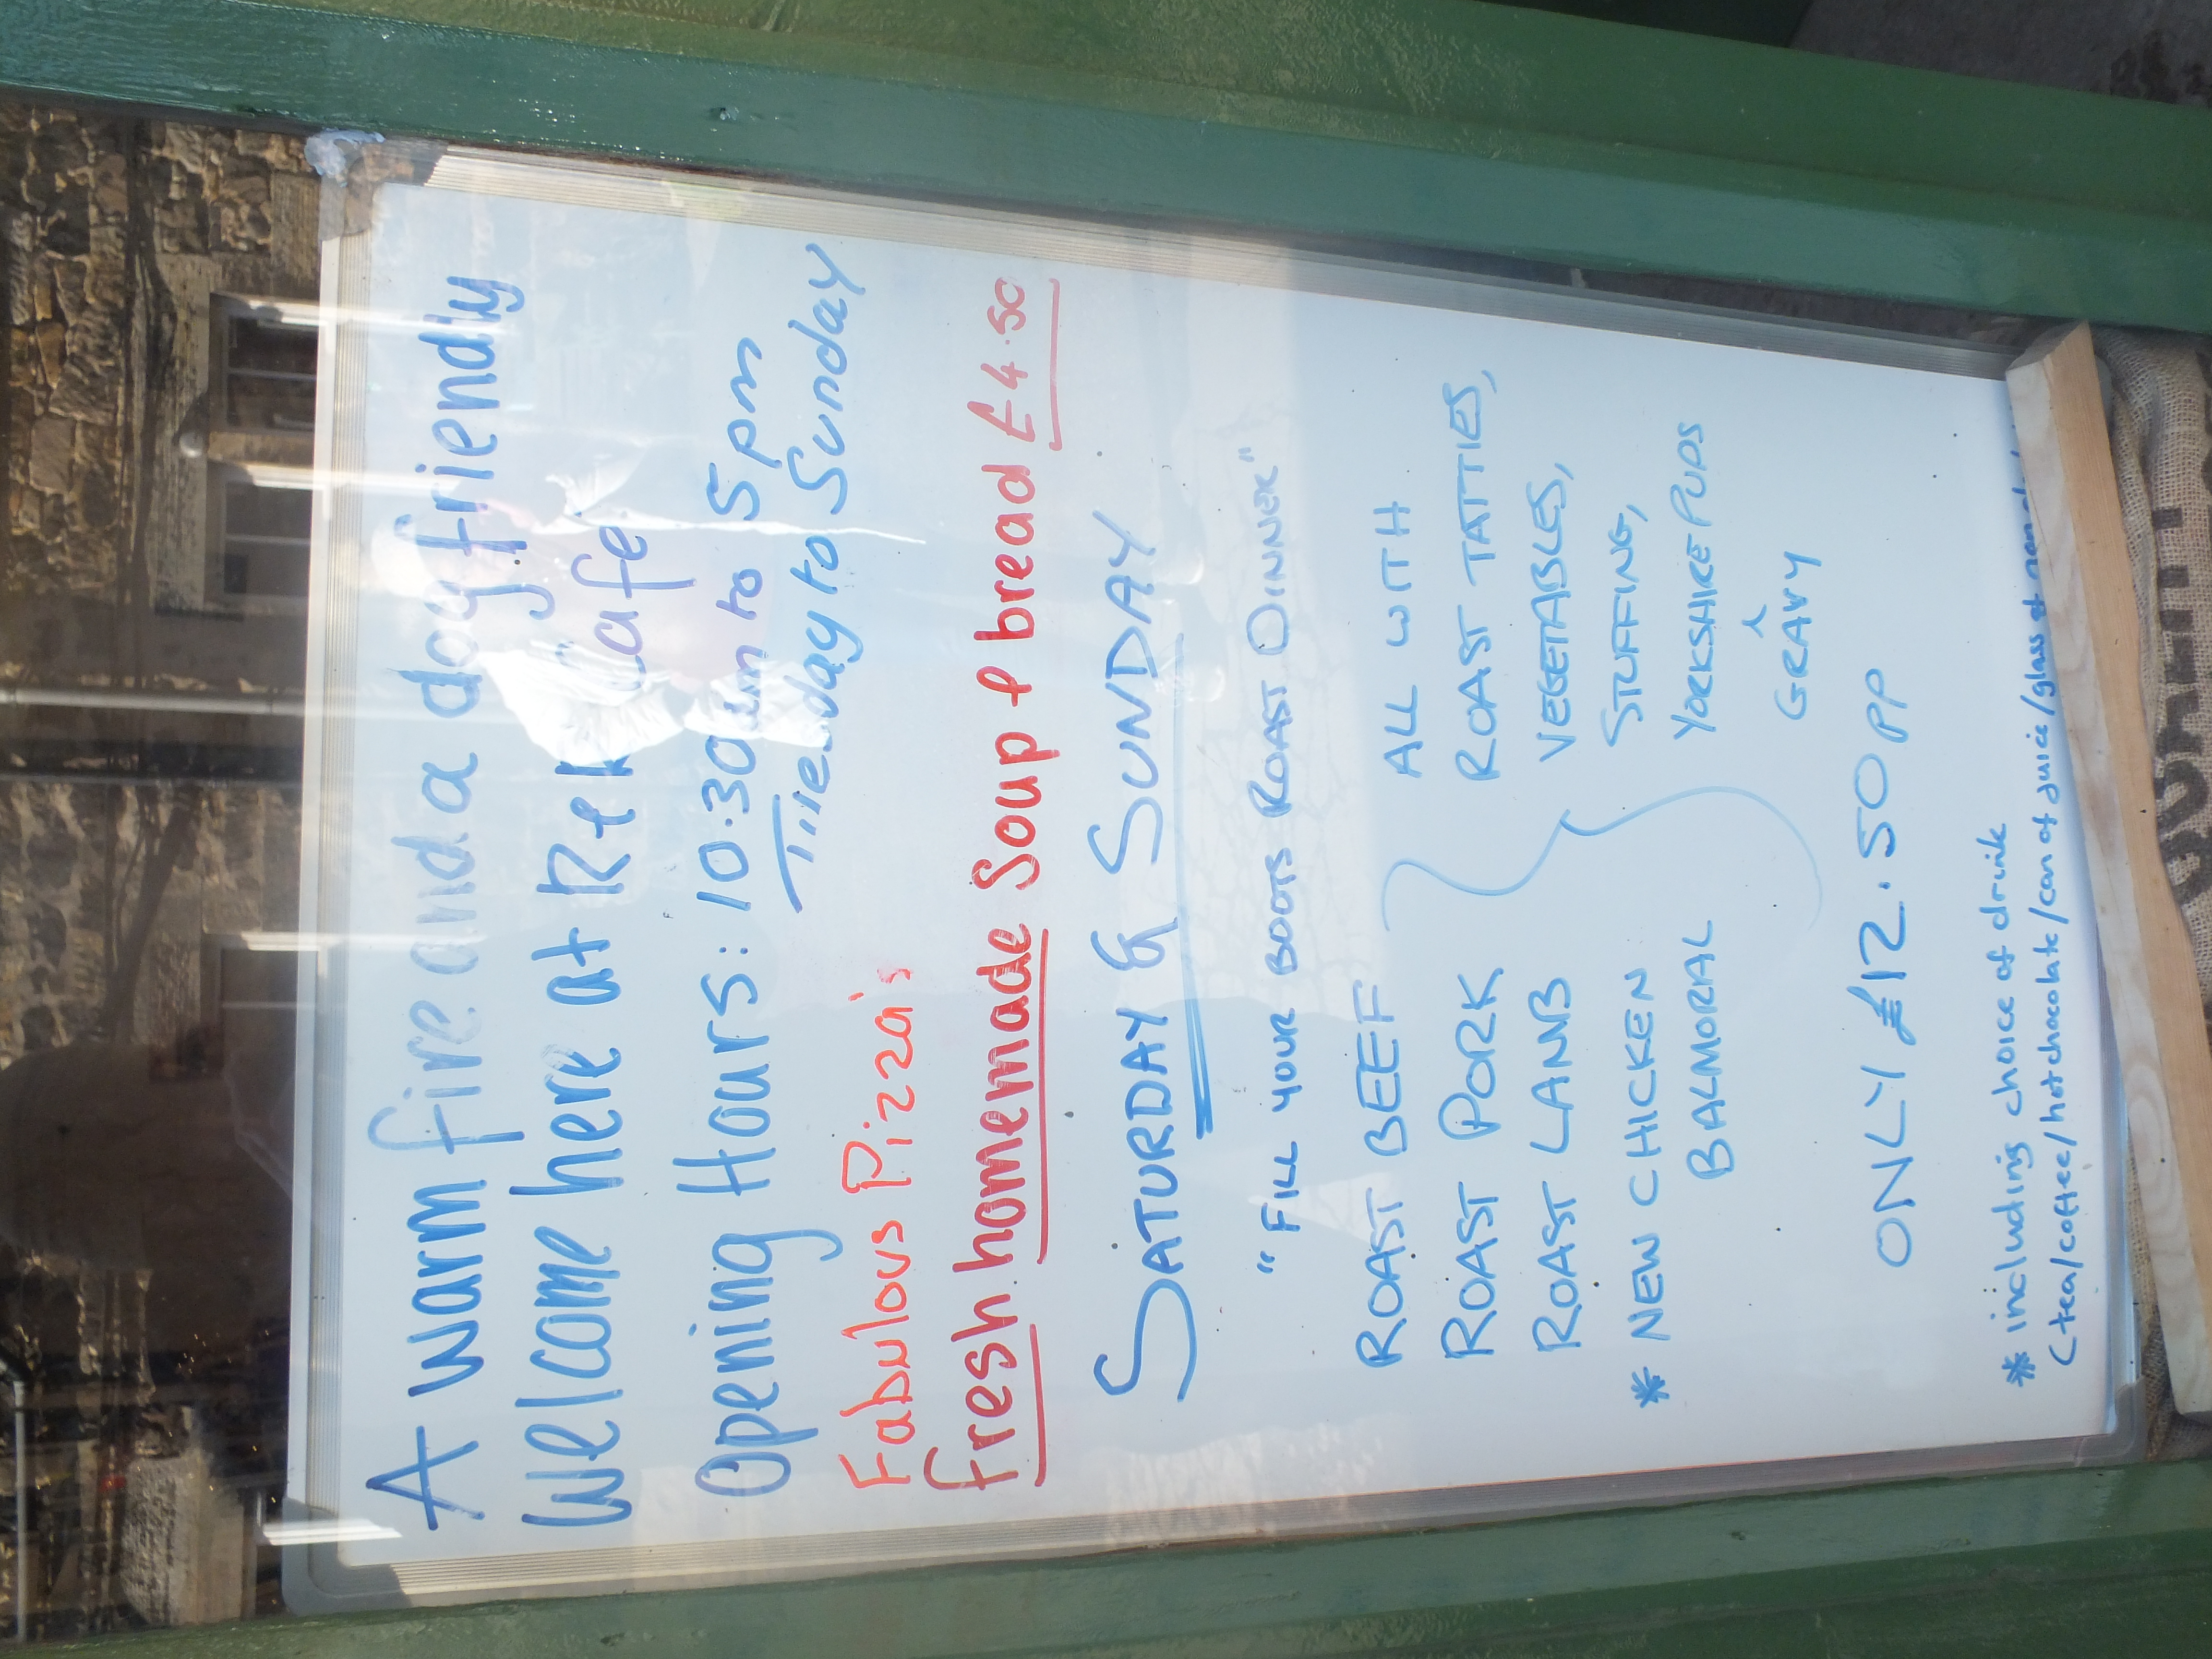 A warm fire and a dog friendly
Welcome here at Cafe
Opening Hours: 10.30am to 5pm
Tuesday to Sunday
Fabulous Pizza's
Fresh homemade Soup & bread £4.50
SATURDAY & SUNDAY
"FILL YOUR BOOTS ROAST DINNER"
ROAST BEEF
ROAST PORK
ROAST LAMB
* NEW CHICKEN
BALMORAL
ALL WITH
ROAST TATTIES,
VEGETABLES,
STUFFING,
YORKSHIRE PUDS
^
GRAVY
ONLY £12.50pp
* including choice of drink
(tea/coffee/hot chocolate/can of juice/glass of
QUALITY